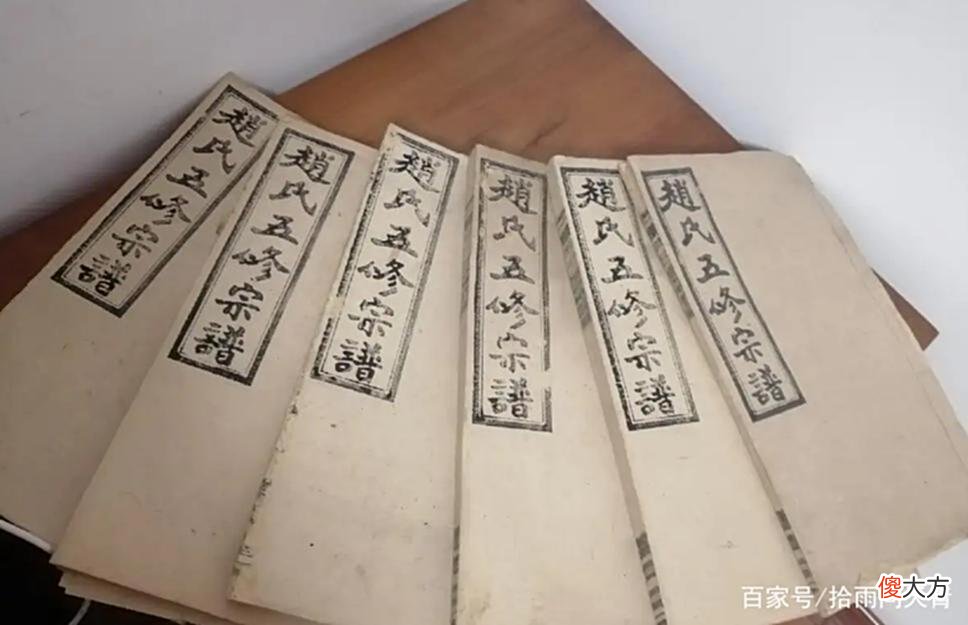 趙氏五修宗譜
趙氏五修宗譜
趙氏五修宗譜
趙氏五修宗譜
趙氏五修宗譜
趙氏五修宗譜
百家号/拾雨
傻大方